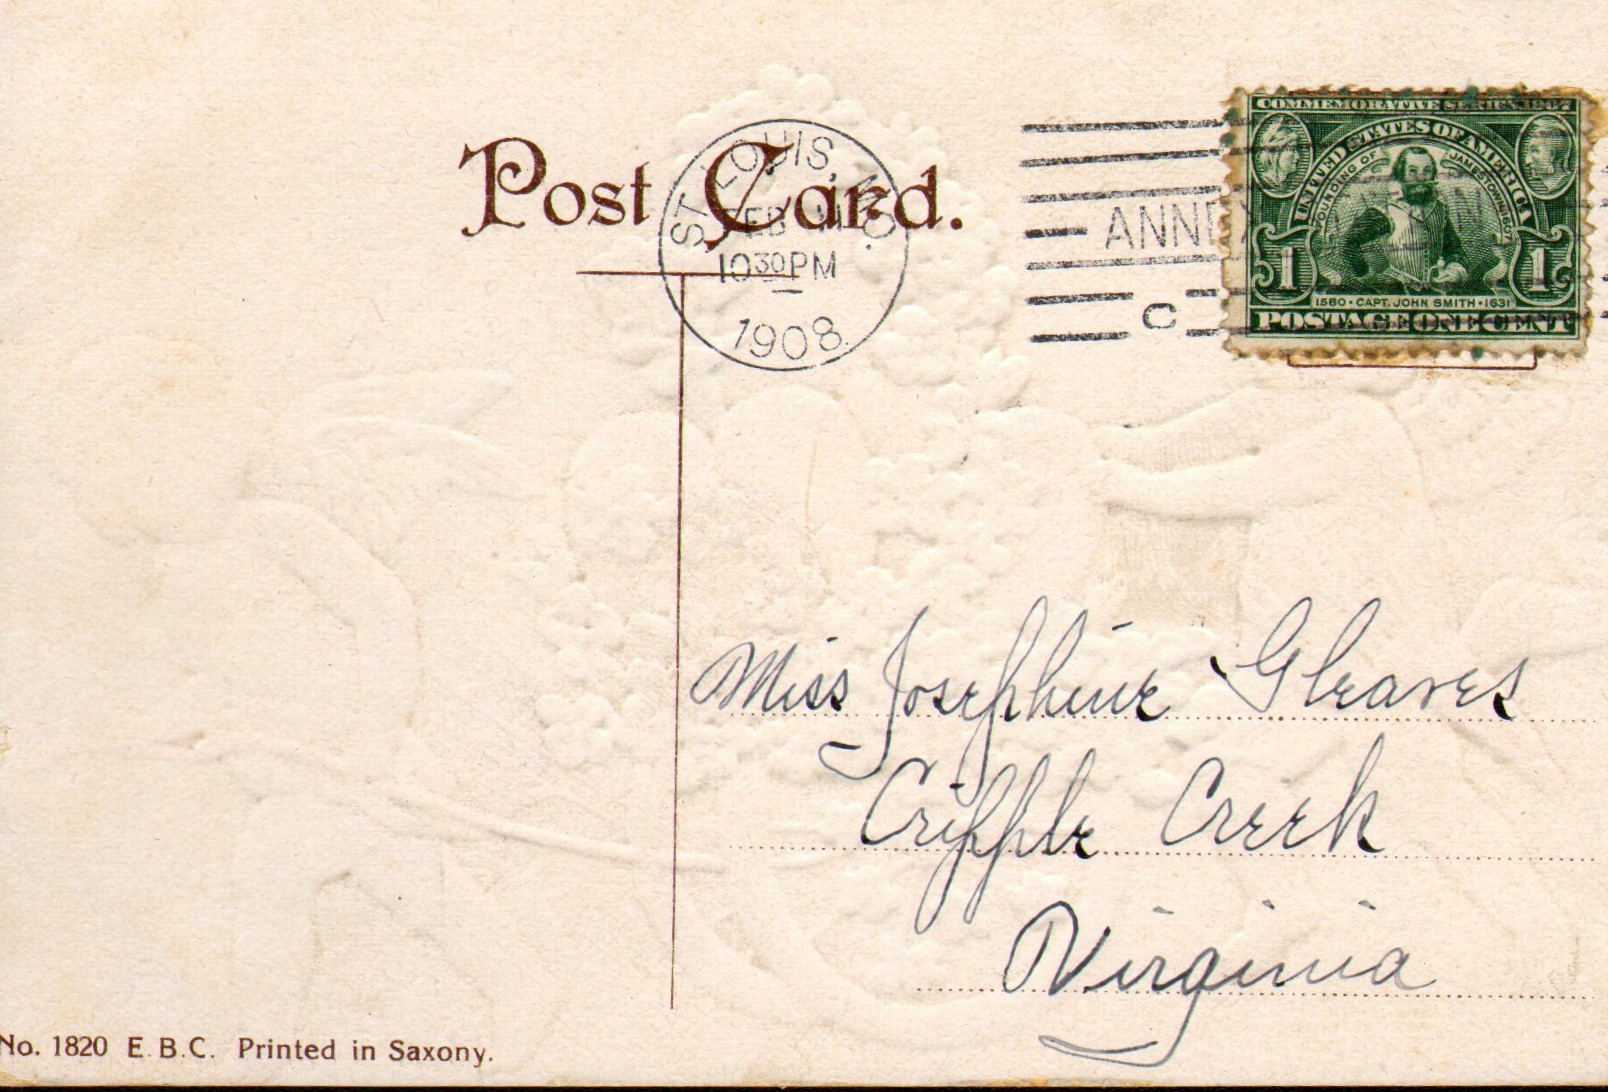 Post Card.
ST. LOUIS, MO.
FEB
10 30 PM
1908
ANNEX
C
COMMEMORATIVE SERIES 1907
UNITED STATES OF AMERICA
FOUNDING OF JAMESTOWN 1607
1 1
1580 · CAPT. JOHN SMITH · 1631
POSTAGE ONE CENT
Miss Josephine Gleaves
Cripple Creek
Virginia
No. 1820 E.B.C. Printed in Saxony.